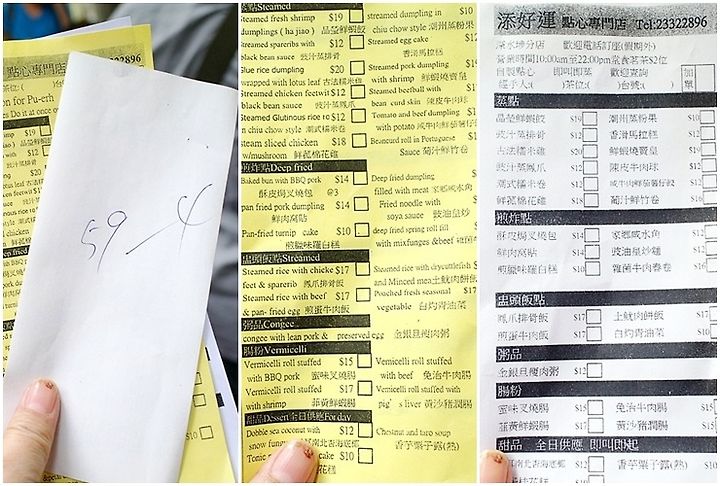 點心專門店
22896
茶位:(
on for Pu-erh
59 — 4
$10
Steamed
Steamed fresh shrimp $19
dumplings ( ha jiao ) 晶瑩鮮蝦餃
steamed spareribs with $12
black bean sauce 豉汁蒸排骨
Glue rice dumpling $20
wrapped with lotus leaf 古法糯米雞
Steamed chicken feetwit $12
black bean sauce 豉汁蒸鳳爪
Steamed Glutinous rice ro $12
n chiu chow style 潮式糯米卷
steam sliced chicken $18
w/mushroom 鮮菰棉花雞
煎炸點Deep fried
Baked bun with BBQ pork $14
酥皮焗叉燒包 @3
pan fried pork dumpling $14
鮮肉窩貼
Pan-fried turnip cake $10
煎臘味蘿白糕
盅頭飯點Steamed
Steamed rice with chicke $17
feet & sparerib 鳳爪排骨飯
Steamed rice with beef $17
& pan- fried egg 煎蛋牛肉飯
粥品Congee
congee with lean pork & preserved egg 金銀旦瘦肉粥
腸粉Vermicelli
Vermicelli roll stuffed $15
with BBQ pork 蜜味叉燒腸
Vermicelli roll stuffed $17
with shrimp 菲黃鮮蝦腸
甜品Dessert全日供應For day
Dobble sea coconut with $12
snow fung 南北杏海底椰
cake $10
streamed dumpling in $10
chiu chow style 潮州蒸粉果
Steamed egg cake
香滑馬拉糕
Steamed pork dumpling
with shrimp 鮮蝦燒賣皇
Steamed beefball with
bean curd skin 陳皮牛肉球
Tomato and beef dumpling
with potato 咸牛肉鮮茄薯仔餃
Beancurd roll in Portuguese
Sauce 葡汁鮮竹卷
Deep fried dumpling
filled with meat 家鄉咸水角
Fried noodle with
soya sauce 豉油皇炒
deep fried spring roll fill
with mixfungs &beef 雜菌牛
Steamed rice with drycuttlefish
and Minced mea 土魷肉餅
Pouched fresh seasonal
vegetable 白灼青油菜
Vermicelli roll stuffed
with beef 免治牛肉腸
Vermicelli roll stuffed with
pig's liver 黃沙豬潤腸
Chestnut and taro soup
香芋栗子露(熱)
添好運 點心專門店 Tel:23322896
深水埗分店 歡迎電話訂座(假期外)
營業時間10:00am至22:00pm堂食茗茶$2位
自製點心 即叫即蒸 歡迎查詢
經手人:( )茶位:( )台號:( )
加單
蒸點
晶瑩鮮蝦餃 $19 潮州蒸粉果 $10
豉汁蒸排骨 $12 香滑馬拉糕 $12
古法糯米雞 $20 鮮蝦燒賣皇 $19
豉汁蒸鳳爪 $12 陳皮牛肉球 $12
潮式糯米卷 $12 咸牛肉鮮茄薯仔餃 $12
鮮菰棉花雞 $18 葡汁鮮竹卷 $16
煎炸點
酥皮焗叉燒包 $14 家鄉咸水角 $12
鮮肉窩貼 $14 豉油皇炒麵 $12
煎臘味蘿白糕 $10 雜菌牛肉春卷 $16
盅頭飯點
鳳爪排骨飯 $17 土魷肉餅飯 $17
煎蛋牛肉飯 $17 白灼青油菜 $10
粥品
金銀旦瘦肉粥 $12
腸粉
蜜味叉燒腸 $15 免治牛肉腸 $15
菲黃鮮蝦腸 $17 黃沙豬潤腸 $17
甜品 全日供應 即叫即起
南北杏海底椰 $12 香芋栗子露(熱) $11
桂花糕 $10